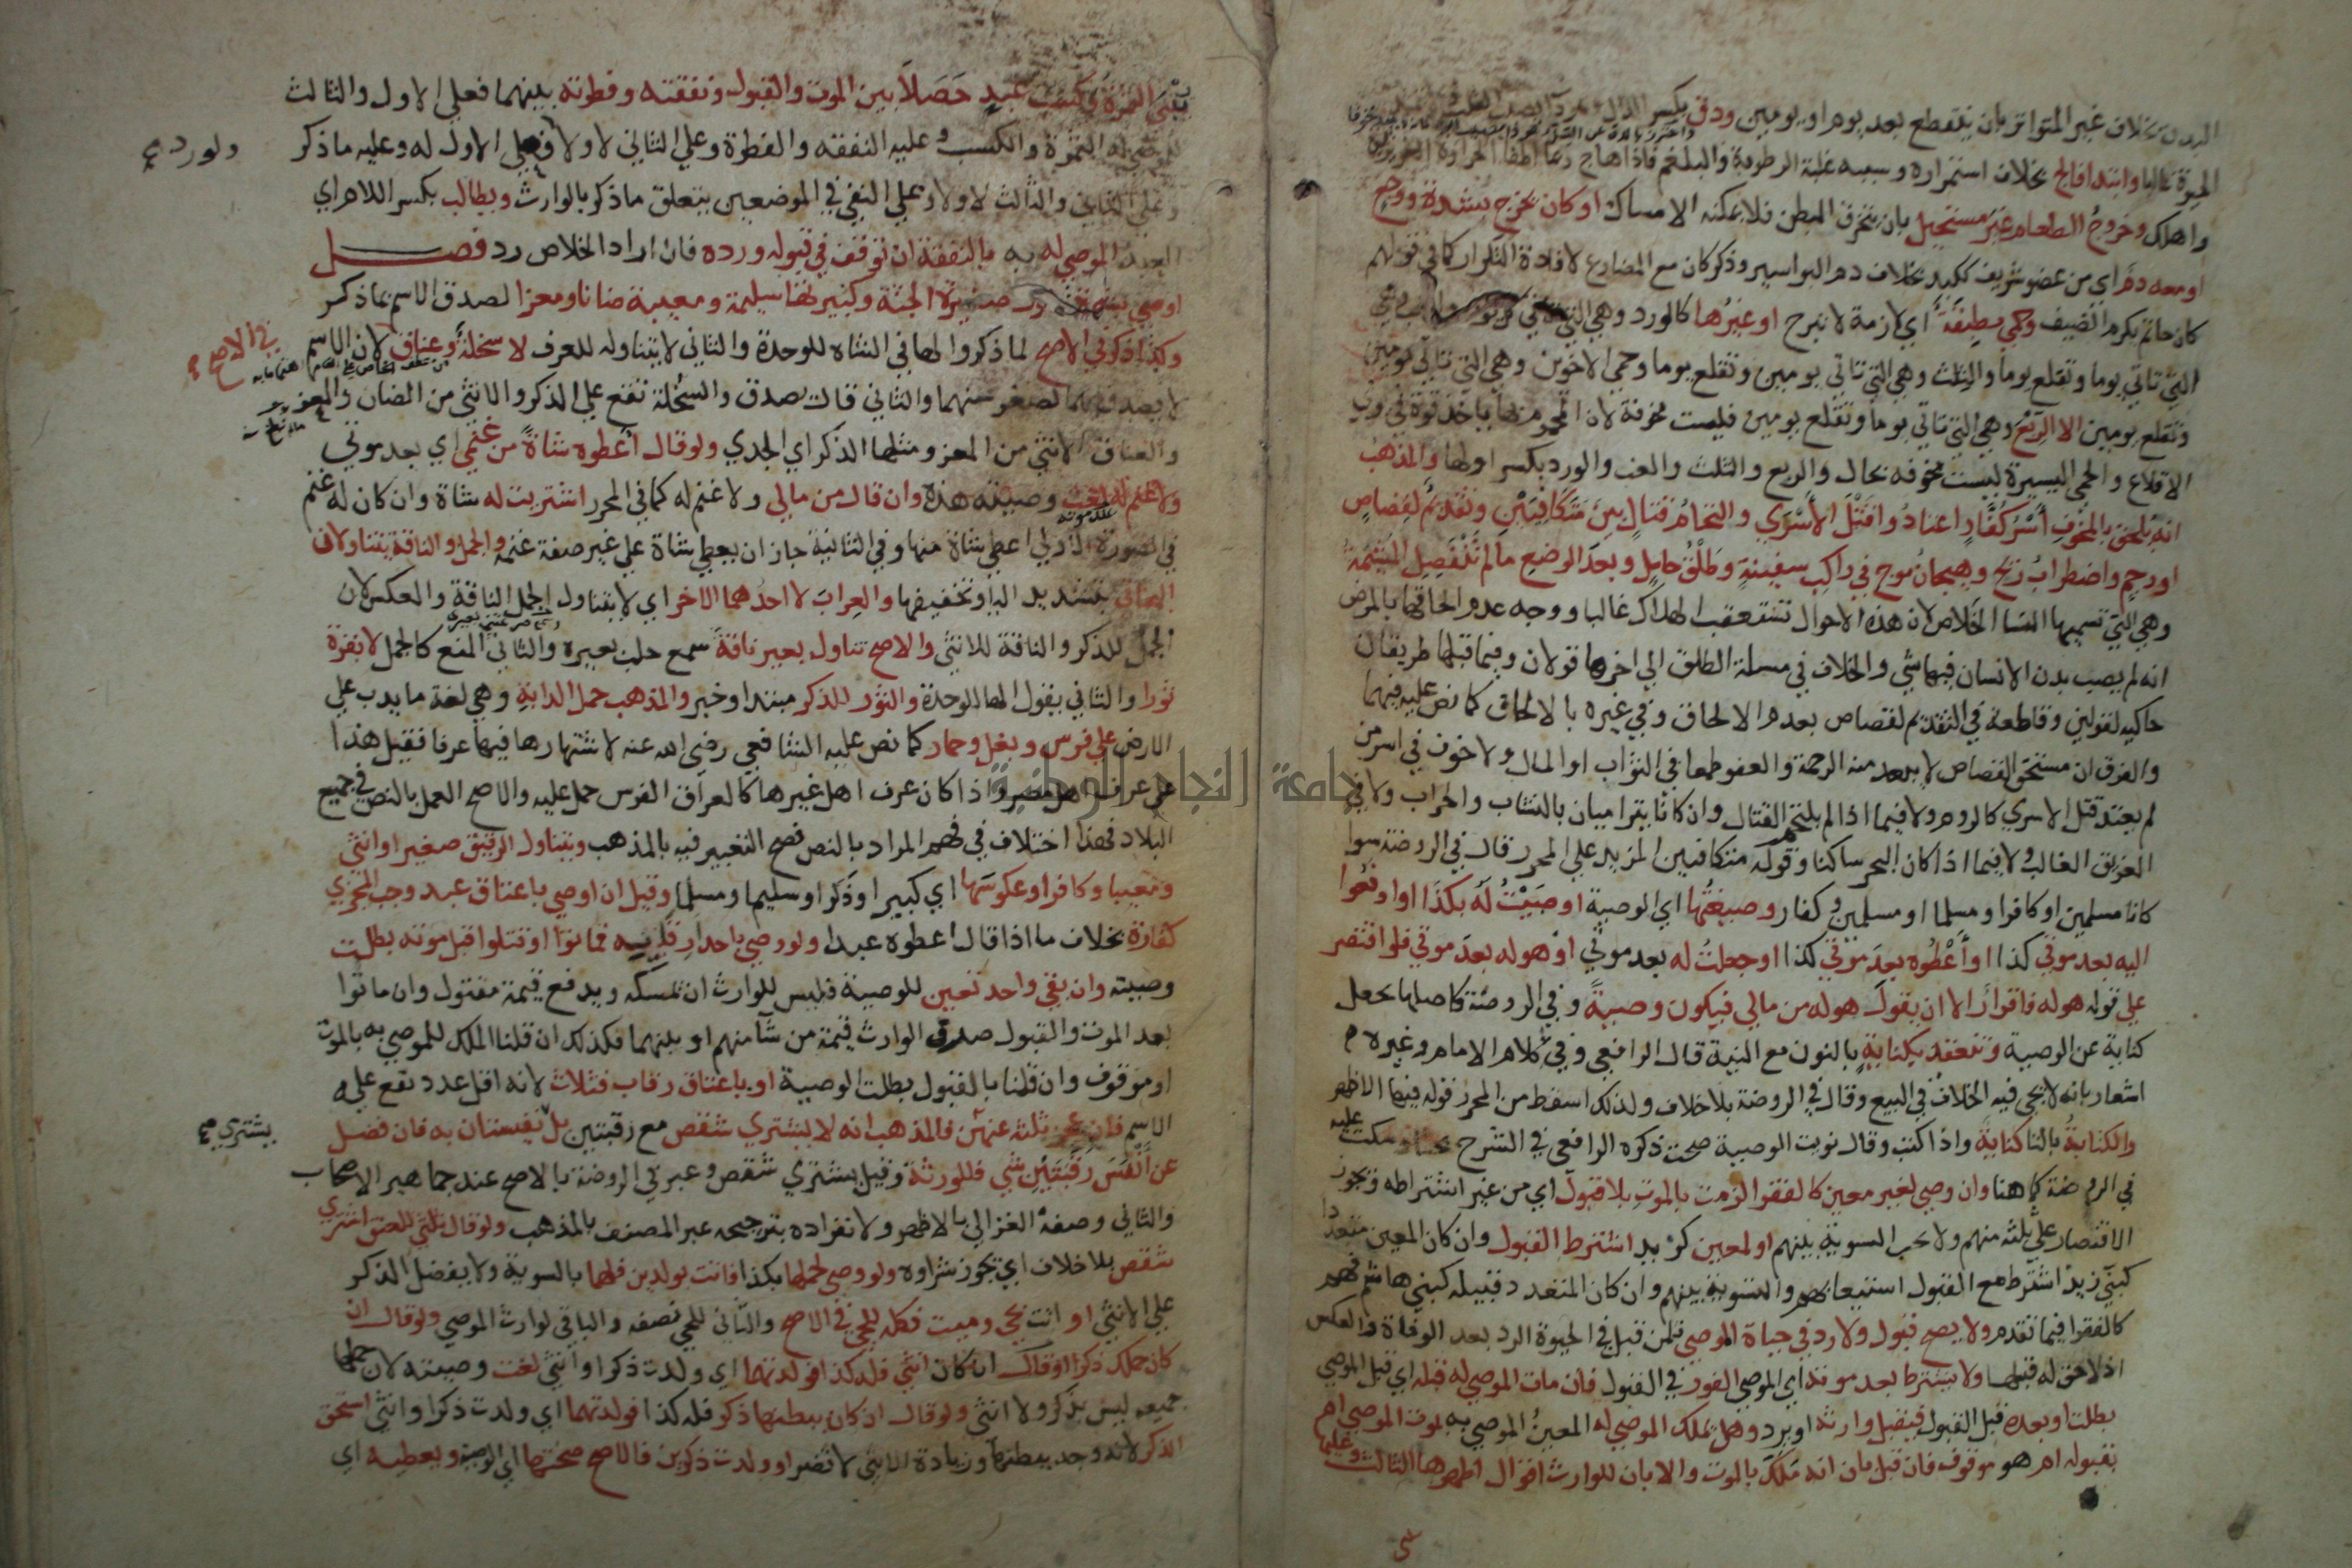 البدن بخلاف غير المتواتر بان ينقطع بعد يوم او يومين ودق بكسر الدال
الحيوة غالبا وابتدا فالج بخلاف استمراره وسببه غلبة الرطوبة والبلغم فاذا هاج ربما اطفا الحرارة الغريزية
واهلك وخروج الطعام غير مستحيل بان ينخرق البطن فلا يمكنه الامساك او كان يخرج بشدة ووجع
او معه دم اي من عضو شريف ككبد بخلاف دم البواسير وذكر كان مع المضارع لافادة التكرار كما في قولهم
كان حاتم يكرم الضيف وحمي مطبقة اي لازمة لا تبرح او غيرها كالورد وهي التي تاتي كل يوم والغب وهي
التي تاتي يوما وتقلع يوما والثلث وهي التي تاتي يومين وتقلع يوما وحمي الاخوين وهي التي تاتي يومين
وتقلع يومين الا الربع وهي التي تاتي يوما وتقلع يومين فليست مخوفة لان المحموم منها ياخذ قوة في يومي
الاقلاع والحمي اليسيرة ليست مخوفه بحال والربع والثلث والغب والورد بكسر اولها والمذهب
انه يلحق بالمخوف أسر كفار اعتادوا قتل الأسري والتحام قتال بين متكافيين وتقديم لقصاص
او رجم واضطراب ريح وهيجان موج في راكب سفينة وطلق حامل وبعد الوضع ما لم تنفصل المشيمة
وهي التي تسميها النسا الخلاص لان هذه الاحوال تستعقب الهلاك غالبا ووجه عدم الحاقها بالمرض
انه لم يصب بدن الانسان فيها شي والخلاف في مسلة الطلق الي اخرها قولان وفيما قبلها طريقان
حاكيه لقولين وقاطعة في التقديم لقصاص بعدم الالحاق وفي غيره بالالحاق كما نص عليه فيهما
والفرق ان مستحق القصاص لا يبعد منه الرحمة والعفو طمعا في الثواب او المال ولا خوف في اسر من
لم يعتد قتل الاسري كالروم ولا فيما اذا لم يلتحم القتال وان كانا يتراميان بالنشاب والحراب ولا في
الفريق الغالب ولا فيما اذا كان البحر ساكنا وقوله متكافيين المزيد علي المحرر قال في الروضة سوا
كانا مسلمين او كافرا ومسلما او مسلمين وكفار وصيغتها اي الوصية اوصيت له بكذا او ادفعوا
اليه بعد موتي كذا او أعطوه بعد موتي كذا او جعلت له بعد موتي او هو له بعد موتي فلو اقتصر
علي قوله هو له فاقرار الا ان يقول هو له من مالي فيكون وصية وفي الروضة كاصلها بجعل
كناية عن الوصية وتنعقد بكناية بالنون مع النية قال الرافعي وفي كلام الامام وغيره
اشعار بانه لا يجي فيه الخلاف في البيع وقال في الروضة بلا خلاف ولذلك اسقط من المحرر قوله فيها الاظهر
والكتابة بالتا كناية واذا كتب وقال نويت الوصية صحت ذكره الرافعي في الشرح بحثا وسكت عليه
في الروضة كما هنا وان وصي لغير معين كالفقرا لزمت بالموت بلا قبول اي من غير اشتراطه ويجوز
الاقتصار علي ثلثه منهم ولا يجب التسوية بينهم او لمعين كزيد اشترط القبول وان كان المعين متعددا
كبني زيد اشترط مع القبول استيعابهم والتسوية بينهم وان كان المتعدد قبيله كبني هاشم فهم
كالفقرا فيما تقدم ولا يصح قبول ولا رد في حياة الموصي فلمن قبل في الحيوة الرد بعد الوفاة والعكس
اذ لا حق له قبلها ولا يشترط بعد موته اي الموصي الفور في القبول فان مات الموصي له قبله اي قبل الموصي
بطلت او بعده قبل القبول فيقبل وارثه او يرد وهل يملك الموصي له المعين الموصي به بموت الموصي ام
بقبوله ام هو موقوف فان قبل بان انه ملك بالموت والا بان للوارث اقوال اظهرها الثالث وعليها
تبنى الثمرة وكسب عبد حصلا بين الموت والقبول ونفقته وفطرته بينهما فعلي الاول والثالث
للموصي له الثمرة والكسب وعليه النفقه والفطرة وعلي الثاني لا ولا وعلي الاول له وعليه ما ذكر
ولو رد صح
وعلي الثاني والثالث لا ولا وعلي النفي في الموضعين يتعلق ما ذكر بالوارث ويطالب بكسر اللام اي
العبد الموصي له به بالنفقة ان توقف في قبوله ورده فان اراد الخلاص رد فصل
اوصي بشاة تناول صغيرة الجثة وكبيرتها سليمة ومعيبة ضانا ومعزا لصدق الاسم بما ذكر
وكذا ذكر في الاصح لما ذكروا لها في الشاه للوحدة والثاني لا يتناوله للعرف لا سخلة وعناق لان الاسم
في الاصح صح
لا يصدق بهما لصغر سنهما والثاني قال يصدق والسخلة تقع علي الذكر والانثي من الضان والمعز
والعناق الانثي من المعز ومثلها الذكر اي الجدي ولو قال أعطوه شاة من غنمي اي بعد موتي
ولا غنم له لغت وصيته هذه وان قال من مالي ولا غنم له كما في المحرر اشتريت له شاة وان كان له غنم
عند موته
في الصورة الاولي اعطي شاة منها وفي الثانية جاز ان يعطي شاة علي غير صفة غنمه والجمل والناقة يتناولان
البخاتي بتشديد اليا وتخفيفها والعراب لا احدهما الاخر اي لا يتناول الجمل الناقة والعكس لان
الجمل للذكر والناقة للانثي والاصح تناول بعير ناقة سمع حلب بعيره والثاني المنع كالجمل لا بقرة
ثورا والثاني يقول الها للوحدة والثور للذكر مبتدا وخبر والمذهب حمل الدابة وهي لغة ما يدب علي
الارض علي فرس وبغل وحمار كما نص عليه الشافعي رضي الله عنه لاشتهارها فيها عرفا فقيل هذا
علي عرف اهل مصر واذا كان عرف اهل غيرها كالعراق الفرس حمل عليه والاصح العمل بالنص في جميع
البلاد فهذا اختلاف في فهم المراد بالنص فصح التعبير فيه بالمذهب ويتناول الرقيق صغيرا وانثي
ومعيبا وكافرا وعكوسها اي كبيرا وذكرا وسليما ومسلما وقيل ان اوصي باعتاق عبد وجب المجزي
كفارة بخلاف ما اذا قال اعطوه عبدا ولو وصي باحد ارقايه فماتوا او قتلوا قبل موته بطلت
وصيته وان بقي واحد تعين للوصية فليس للوارث ان يمسكه ويدفع قيمة مقتول وان ماتوا
بعد الموت والقبول صرف الوارث قيمة من شا منهم او بينهما فكذلك ان قلنا الملك للموصي به بالموت
او موقوف وان قلنا بالقبول بطلت الوصية او باعتاق رقاب فثلاث لانه اقل عدد تقع عليه
الاسم فان عجز ثلثه عنهن فالمذهب انه لا يشتري شقص مع رقبتين بل نفيستان به فان فضل
يشتري صح
عن أنفس رقبتين شي فللورثة وقيل يشتري شقص وعبر في الروضة بالاصح عند جماهير الاصحاب
والثاني وصفه الغزالي بالاظهر ولانفراده بترجيحه عبر المصنف بالمذهب ولو قال ثلثي للعتق اشتري
شقص بلا خلاف اي يجوز شراوه ولو وصي لحملها بكذا فاتت بولدين فلهما بالسوية ولا يفضل الذكر
علي الانثي او اتت بحي وميت فكله للحي في الاصح والثاني للحي نصفه والباقي لوارث الموصي ولو قال ان
كان حملك ذكرا او قال ان كان انثي فله كذا فولدتهما اي ولدت ذكرا وانثي لغت وصيته لان حملها
جميعه ليس بذكر ولا انثي ولو قال ان كان ببطنها ذكر فله كذا فولدتهما اي ولدت ذكرا وانثي استحق
الذكر لانه وجد ببطنها وزيادة الانثي لا تضر او ولدت ذكرين فالاصح صحتها اي الوصية ويعطيه اي
جامعة النجاح الوطنية